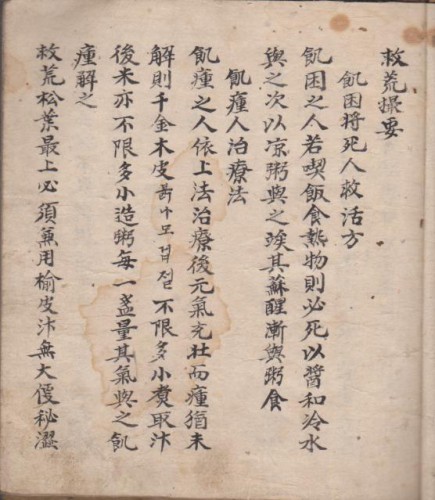 救荒撮要
飢困将死人救活方
飢困之人若喫飯食熱物則必死以醬和冷水
與之次以凉粥與之竢其蘇醒漸與粥食
飢瘇人治療法
飢瘇之人依上法治療後元氣充壮而瘇猶未
解則千金木皮붉나모겁질不限多小煑取汁
後米亦不限多小造粥每一盞量其氣與之飢
瘇解之
救荒松葉最上必須兼用榆皮汁無大便秘澀